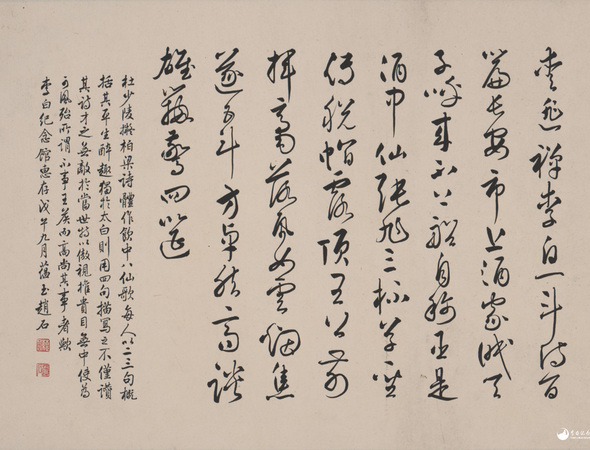 愛逃禪李白一斗詩百
篇長安市上酒家眠天
子呼來不上船自稱臣是
酒中仙張旭三杯草聖
傳脫帽露頂王公前
揮毫落紙如雲煙焦
遂五斗方卓然高談
雄辯驚四筵
杜少陵擬柏梁詩體作飲中八仙歌每人以二三句概
括其平生醉趣獨於太白則用四句描寫之不僅讚
其詩才之無敵於當世特以傲視權貴目無中使為
可風殆所謂不事王侯而高尚其事者歟
李白紀念館惠存戊午九月蘊玉趙石